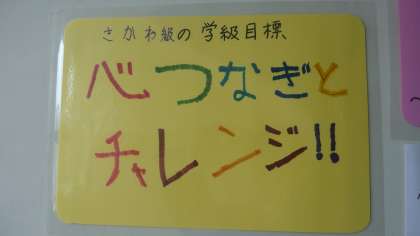 さかわ級の学級目標
心つなぎと
チャレンジ!!